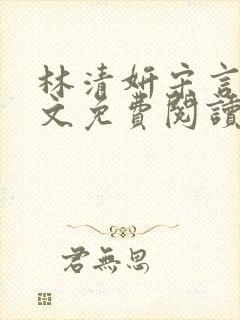 林清妍宋言
文免費閱讀
君無思